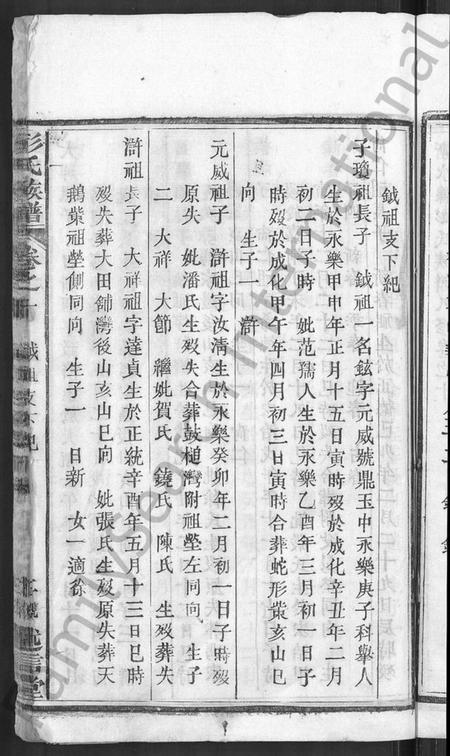 鉞祖支下紀
子瓊祖長子　鉞祖一名鉉字元威號鼎玉中永樂庚子科舉人
生於永樂甲申年正月十五日寅時歿於成化辛丑年二月
初二日子時　妣范孺人生於永樂乙酉年三月初一日子
時歿於成化甲午年四月初三日寅時合葬蛇形嵗亥山巳
向　生子一　滸
元威祖子　滸祖字汝淸生於永樂癸卯年二月初一日子時歿
原失　妣潘氏生歿失合葬鼓槌灣附祖塋左同向　生子
二　大祥　大節　繼妣賀氏　饒氏　陳氏　生歿葬失
滸祖長子　大祥祖字達貞生於正統辛酉年五月十三日巳時
歿失葬大田舖灣後山亥山巳向　妣張氏生歿原失葬天
鵝葉祖塋側同向　生子一　日新　女一適徐
彭氏族譜
卷之一
鉞祖支下紀
述信堂
FamilySearch International